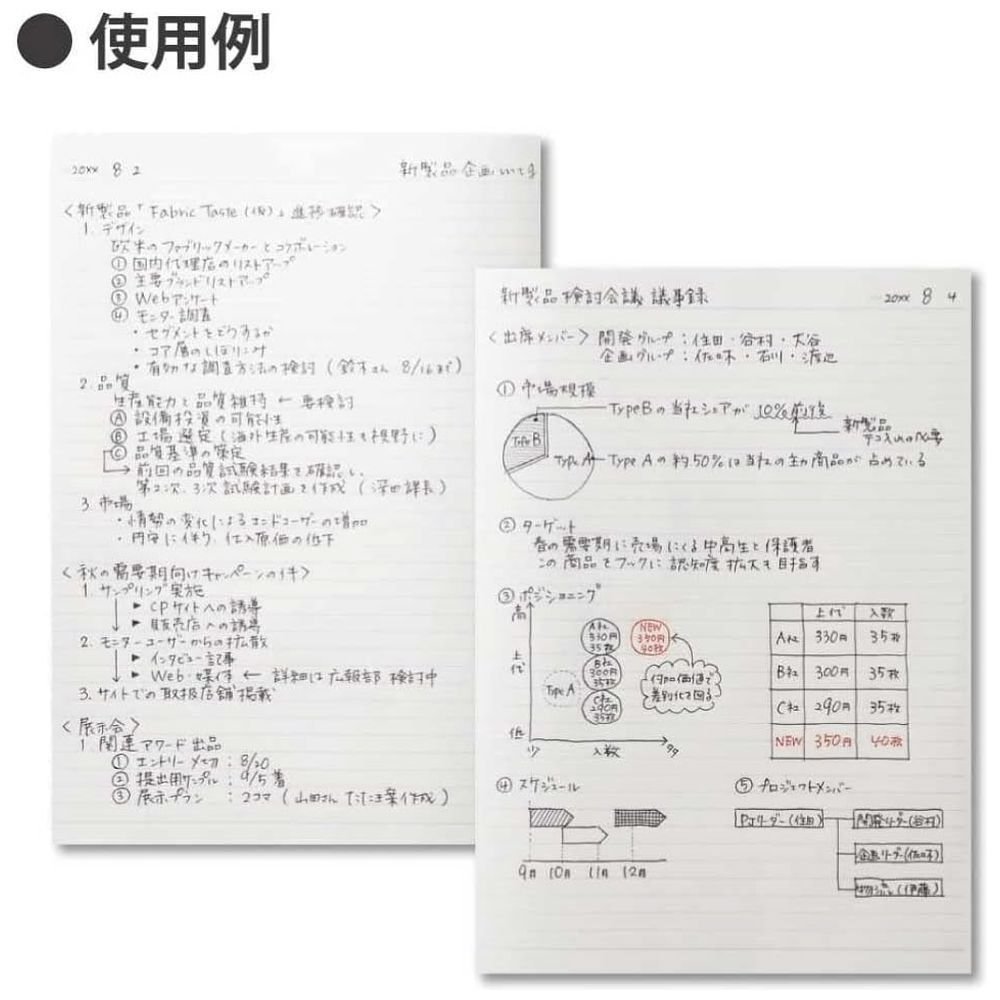 ● 使用例
20XX 8 2
新製品企画
<新製品「Fabric Taste (仮)」進捗確認>
1. デザイン
欧米のファブリックメーカーとコラボレーション
① 国内代理店のリストアップ
② 主要ブランドリストアップ
③ Webアンケート
④ モニター調査
・セグメントをどうするか
・コア層のしぼりこみ
・有効な調査方法の検討 (鈴木さん 8/16まで)
2. 品質
生産能力と品質維持 ← 要検討
Ⓐ 設備投資の可能性
Ⓑ 工場選定 (海外生産の可能性も視野に)
Ⓒ 品質基準の策定
→ 前回の品質試験結果を確認し、
第2次、3次試験計画を作成 (深田課長)
3. 市場
・情勢の変化によるエンドユーザーの増加
・円安に伴う、仕入原価の低下
<秋の需要期向けキャンペーンの件>
1. サンプリング実施
▶ CPサイトへの誘導
▶ 販売店への誘導
2. モニターユーザーからの拡散
▶ インタビュー記事
▶ Web・媒体 ← 詳細は広報部 検討中
3. サイトでの取扱店舗掲載
<展示会>
1 関連アワード出品
① エントリー〆切 : 8/20
② 提出用サンプル : 9/5着
③ 展示プラン : 2コマ (山田さん たたき案作成)
新製品検討会議 議事録
20XX 8 4
<出席メンバー> 開発グループ : 住田・谷村・大谷
企画グループ : 佐々木・石川・渡辺
① 市場規模
Type Bの当社シェアが 10%前後
新製品
テコ入れの必要
Type B
Type A
Type Aの約50%は当社の主力商品が占めている
② ターゲット
春の需要期に売場にくる中高生と保護者
この商品をフックに認知度拡大も目指す
③ ポジショニング
高
上代
低
少
入数
多
Type A
A社
330円
35枚
B社
300円
35枚
C社
290円
35枚
NEW
350円
40枚
付加価値で
差別化を図る
上代 入数
A社 330円 35枚
B社 300円 35枚
C社 290円 35枚
NEW 350円 40枚
④ スケジュール
9月 10月 11月 12月
⑤ プロジェクトメンバー
PJリーダー(住田)
開発リーダー(谷村)
企画リーダー(佐々木)
(伊藤)